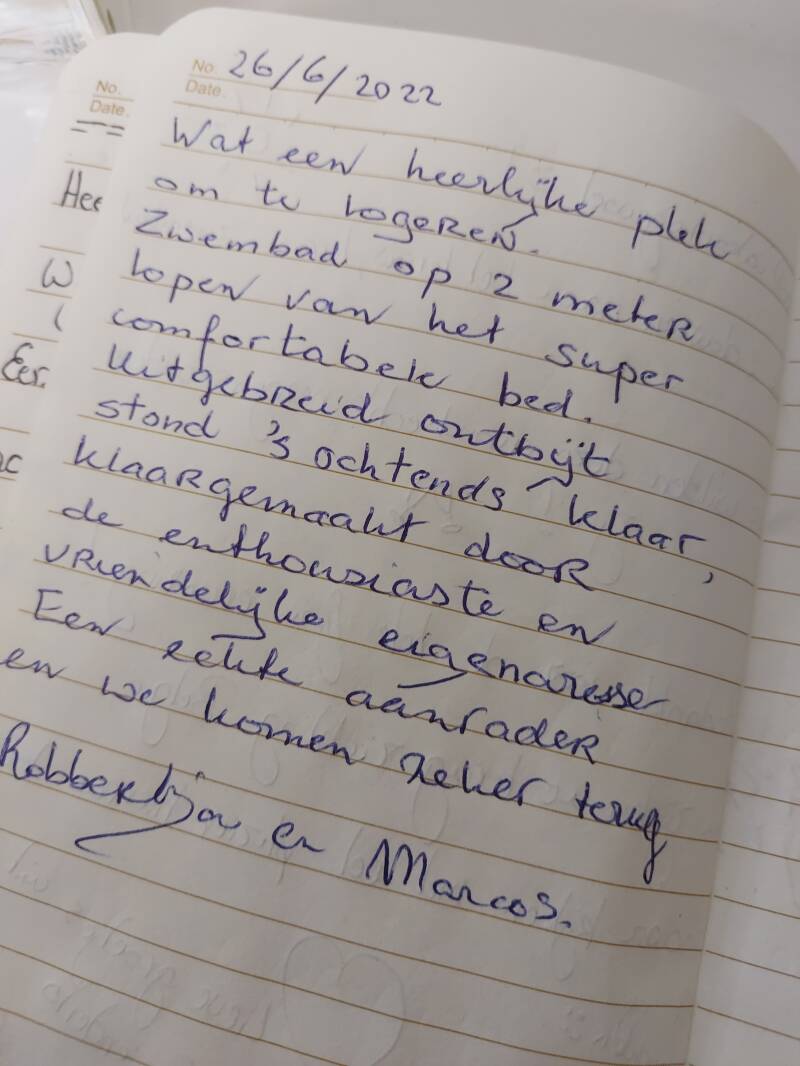 No. 26/6/2022
Date.
Wat een heerlijke plek
om te logeren.
Zwembad op 2 meter
lopen van het super
comfortabele bed.
Uitgebreid ontbijt
stond 's ochtends klaar,
klaargemaakt door
de enthousiaste en
vriendelijke eigenaresse
Een echte aanrader
en we komen zeker terug
en Marcos.
No.
Date.
Hee
W
Eer